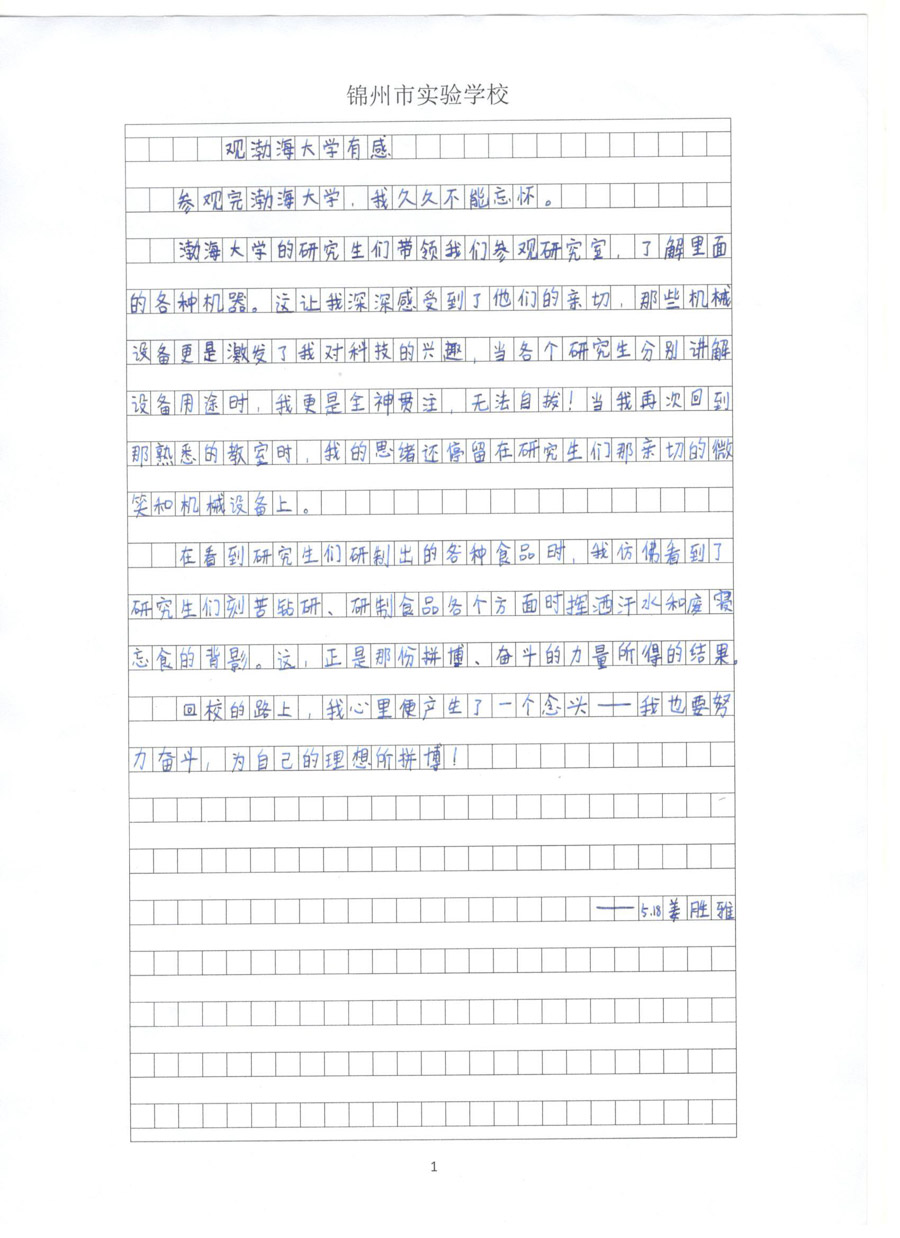 锦州市实验学校
观渤海大学有感
参观完渤海大学，我久久不能忘怀。
渤海大学的研究生们带领我们参观研究室，了解里面
的各种机器。这让我深深感受到了他们的亲切，那些机械
设备更是激发了我对科技的兴趣，当各个研究生分别讲解
设备用途时，我更是全神贯注，无法自拔！当我再次回到
那熟悉的教室时，我的思绪还停留在研究生们那亲切的微
笑和机械设备上。
在看到研究生们研制出的各种食品时，我仿佛看到了
研究生们刻苦钻研、研制食品各个方面时挥洒汗水和废寝
忘食的背影。这，正是那份拼博、奋斗的力量所得的结果。
回校的路上，我心里便产生了一个念头——我也要努
力奋斗，为自己的理想所拼博！
——5.18姜胜雅
1